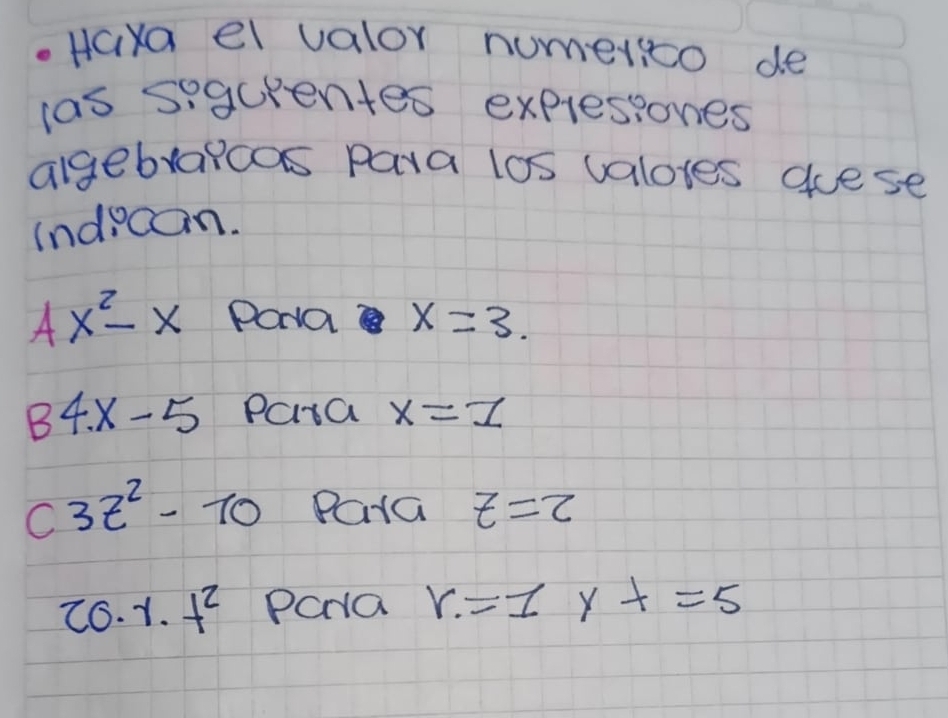 • Haxa el valor numerico de
las siguientes expresiones
algebraicas para los valores que se
indican.
A x² - x para x = 3.
B 4.x - 5 para x = 1
C 3z² - 10 para z = 2
20. r. t² para r. = 1 y t = 5